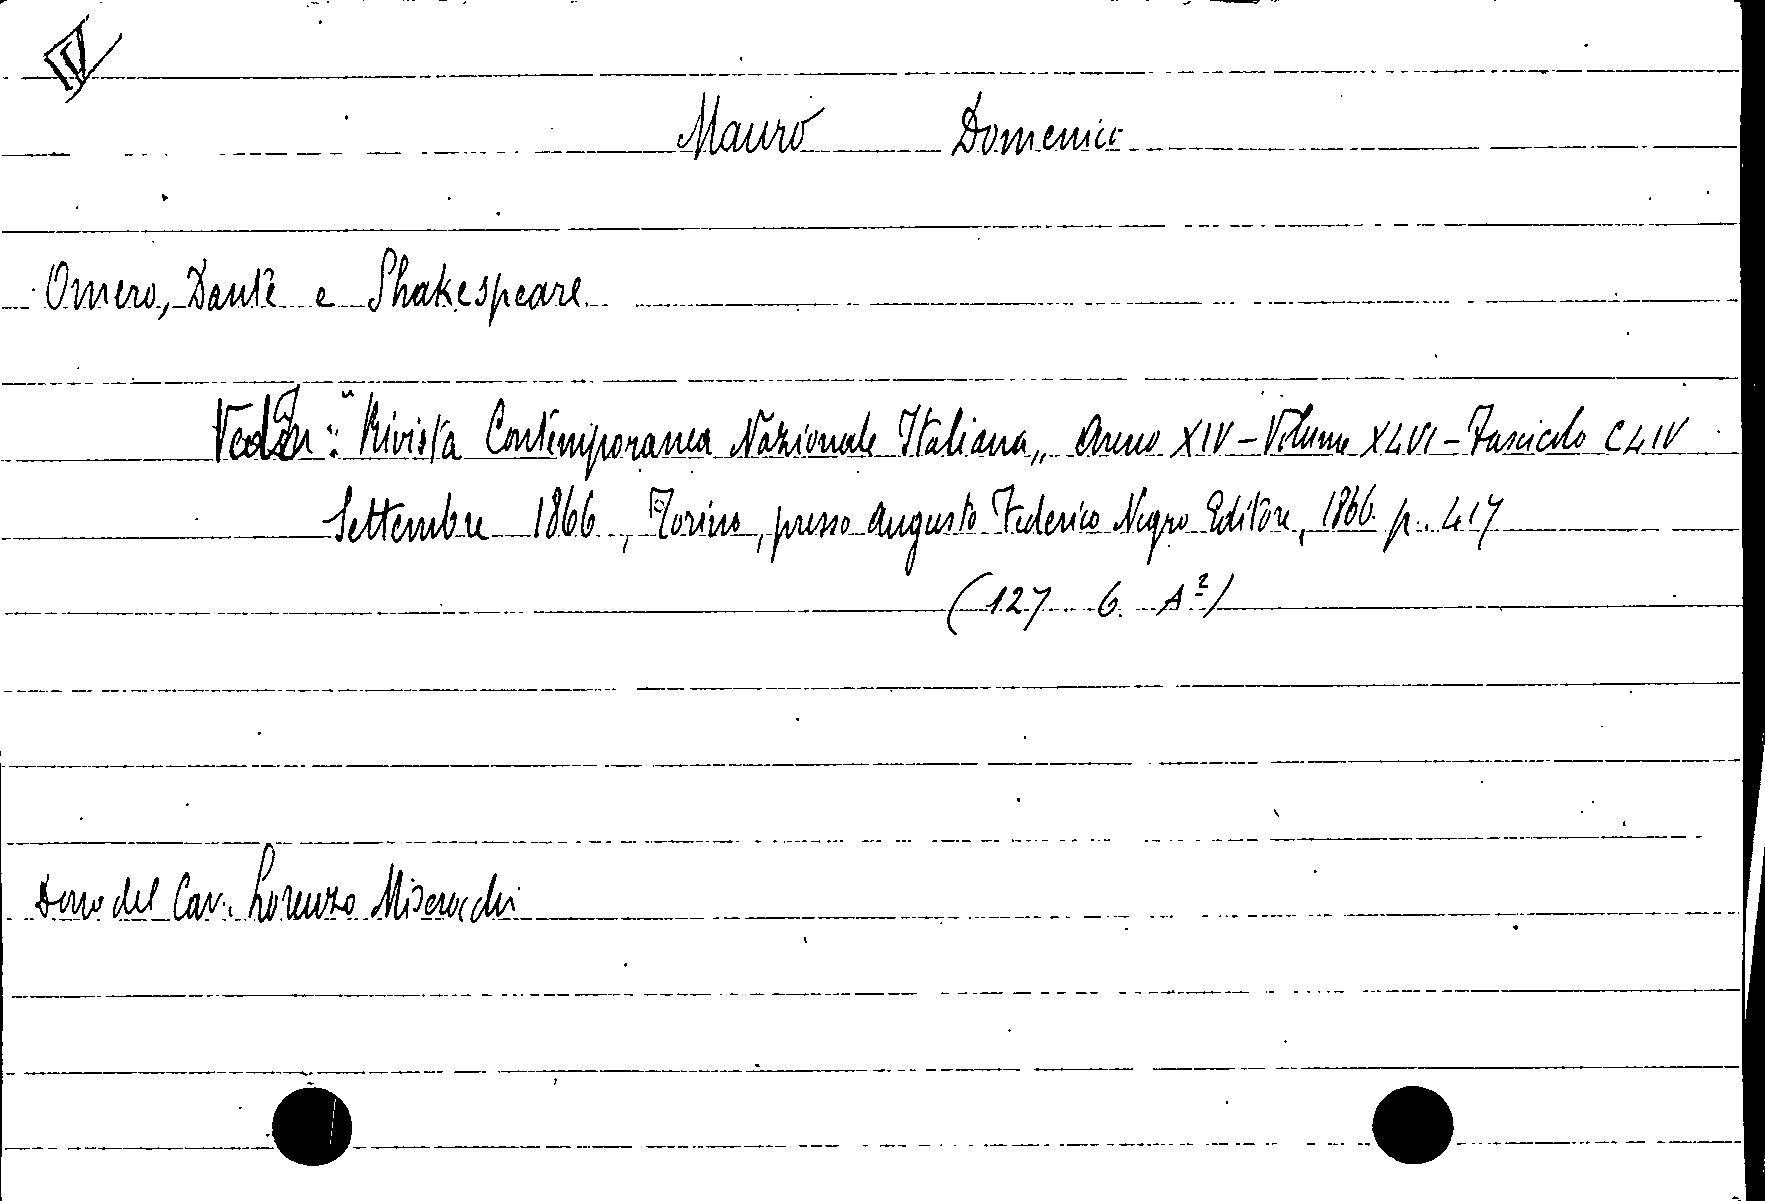 IV
Mauro Domenico
Omero, Dante e Shakespeare
Ved. In: "Rivista Contemporanea Nazionale Italiana,, Anno XIV - Volume XLVI - Fascicolo CLIV
Settembre 1866, Torino, presso Augusto Federico Negro Editore, 1866. p. 417
(127 6. A²)
Dono del Cav. Lorenzo Miserocchi